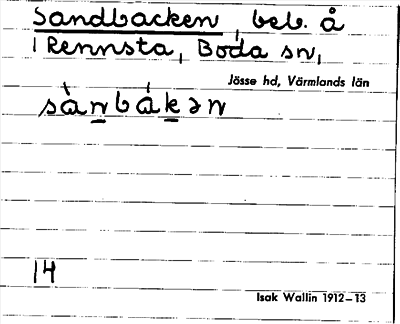 Sandbacken, beb. å
1 Rennsta, Boda sn,
Jösse hd, Värmlands län
sànbákən
14
Isak Wallin 1912–13